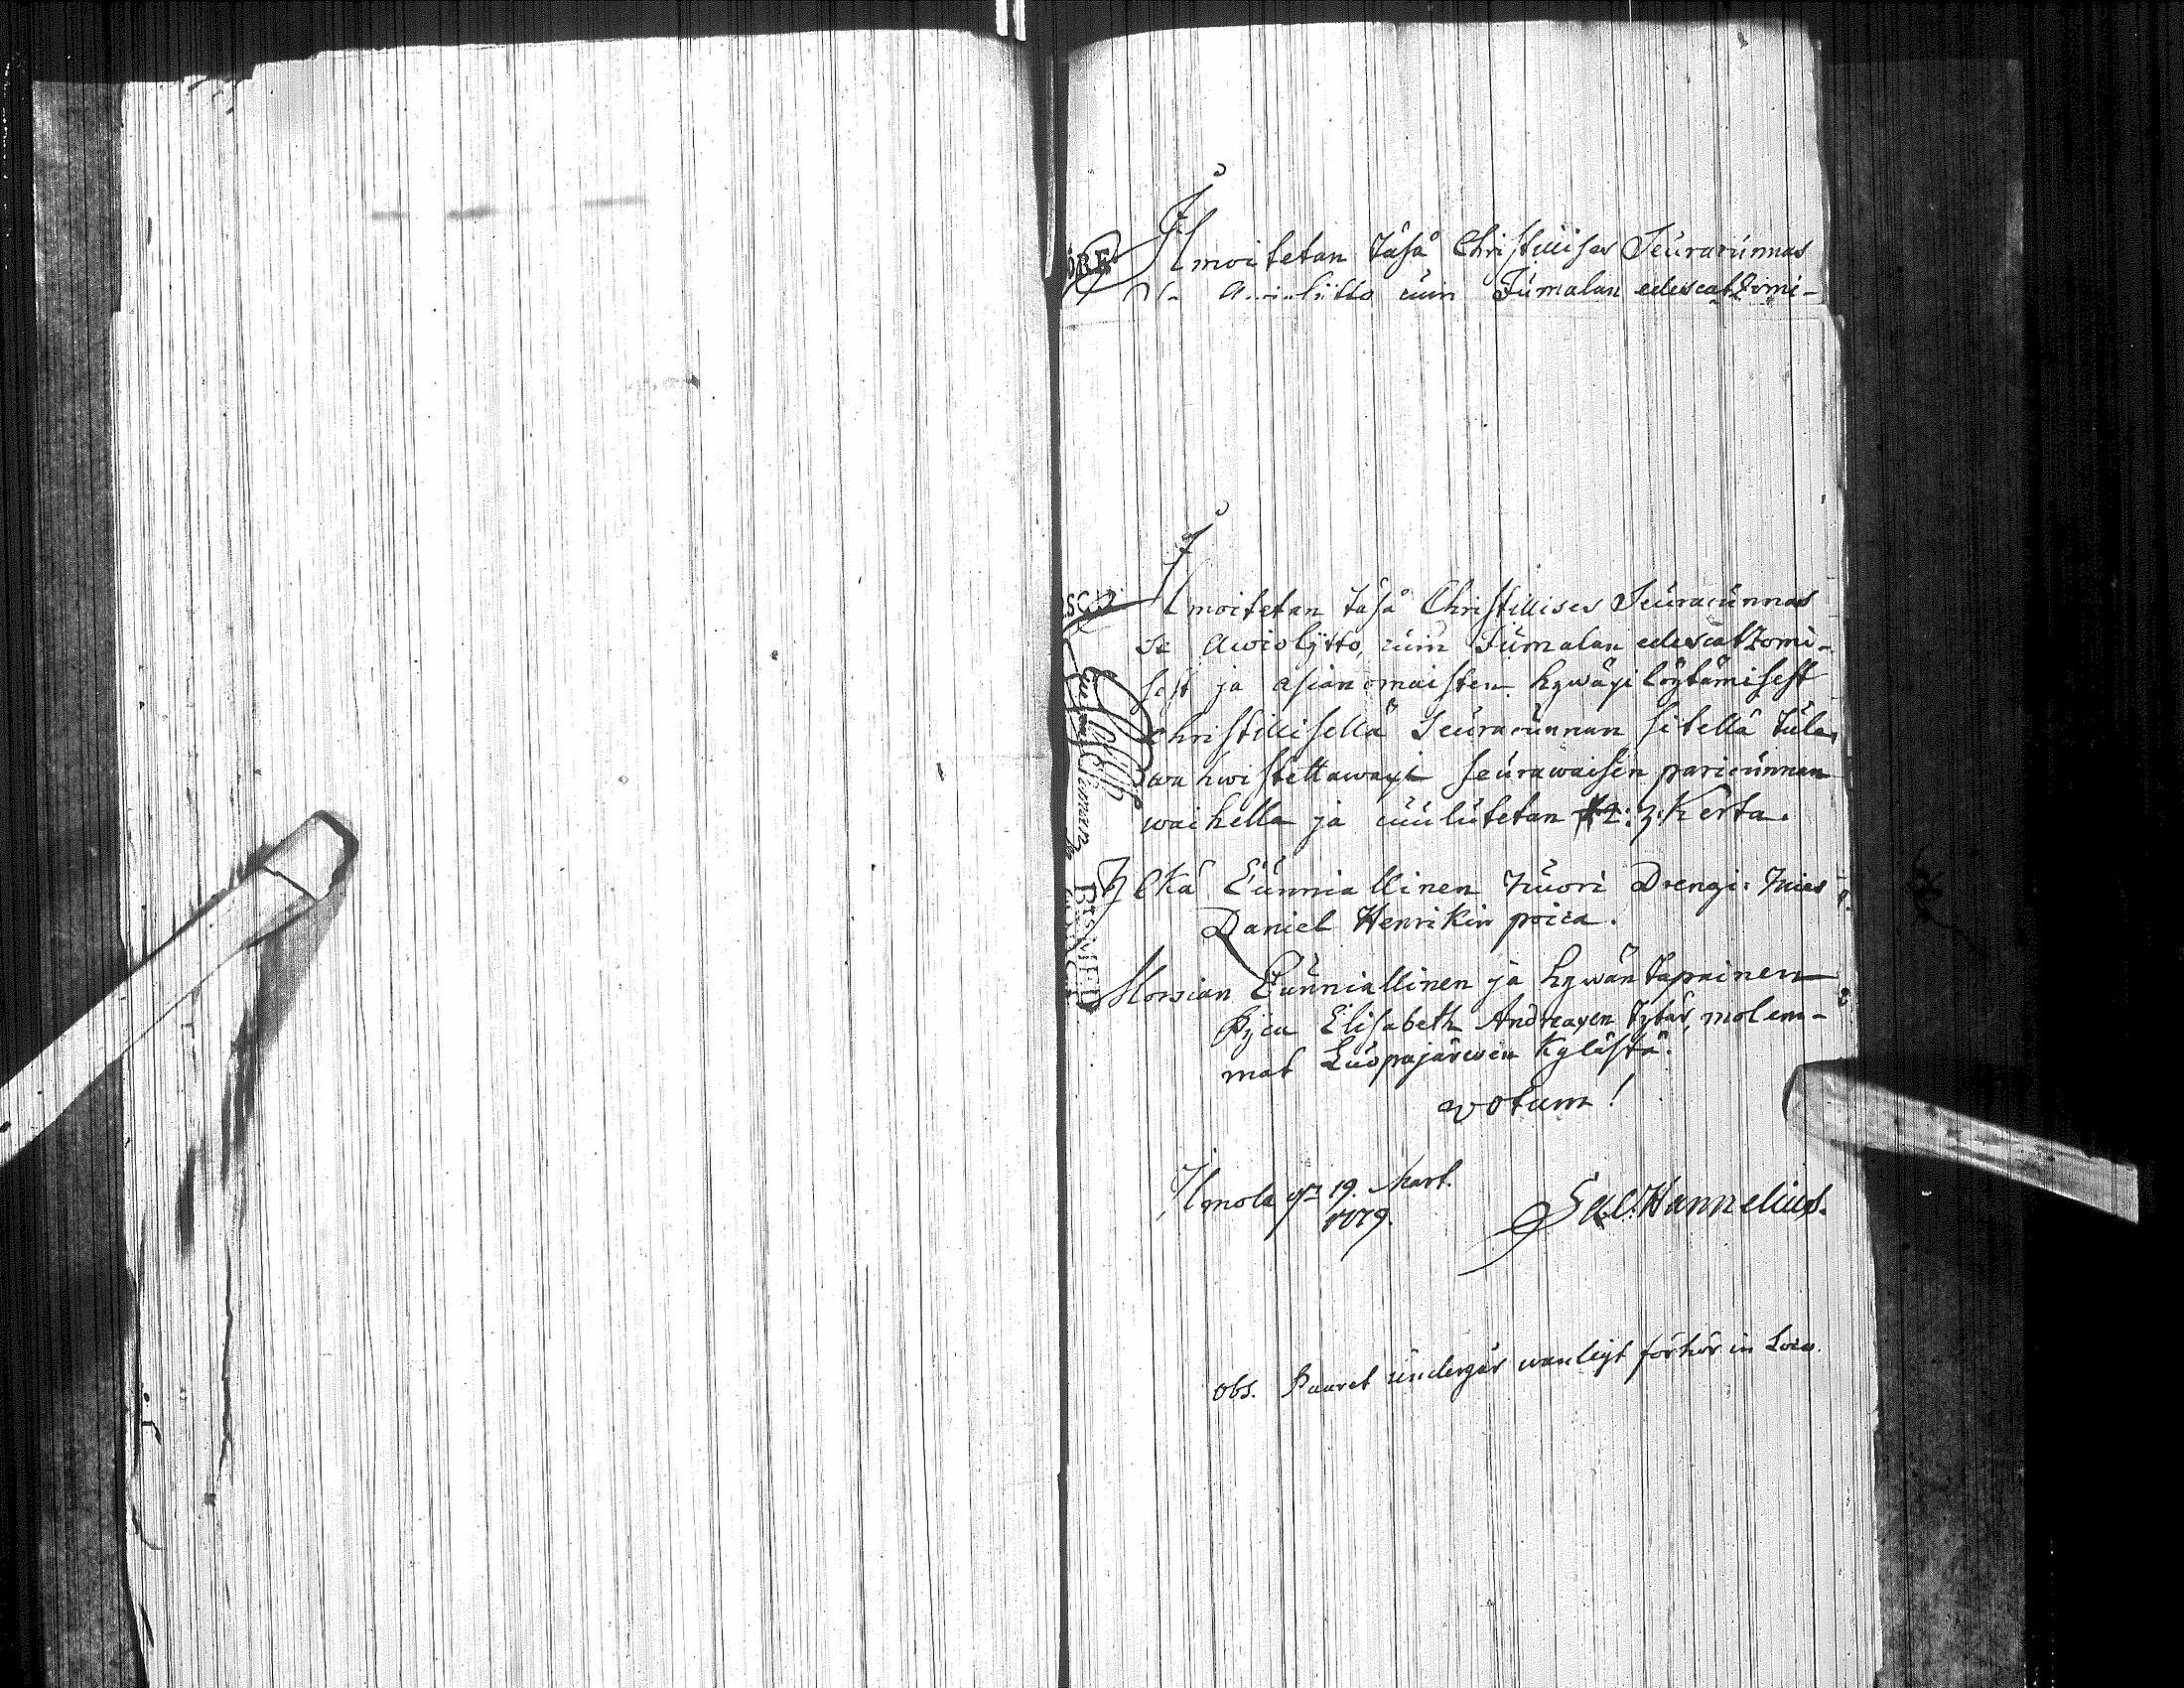 Ilmoitetan täsä Christillises Seuracunnas
cuin Jumalan edescatzomi-
Ilmoitetan täsä Christillises Seuracunnas
se Awiolijtto, cuin Jumalan edescatzomi-
sest ja asianomaisten hywäxi löytämisest
Christillisellä Seuracunnan sitellä tule
wahwistettawaxi seurawaisen paricunnan
waihella ja cuulutetan 2: 3: Kerta.
Yljkä Cunniallinen nuori Drengi mies
Daniel Henrikin poica.
Morsian Cunniallinen ja hywän tapainen
Pijca Elisabeth Andreaxen tytär, molem-
mat Luopajärwen Kylästä.
votum!
Ilmola 19. Mart.
Hannelius.
Obs. Paaret undergår wanligt förhör in Loco.